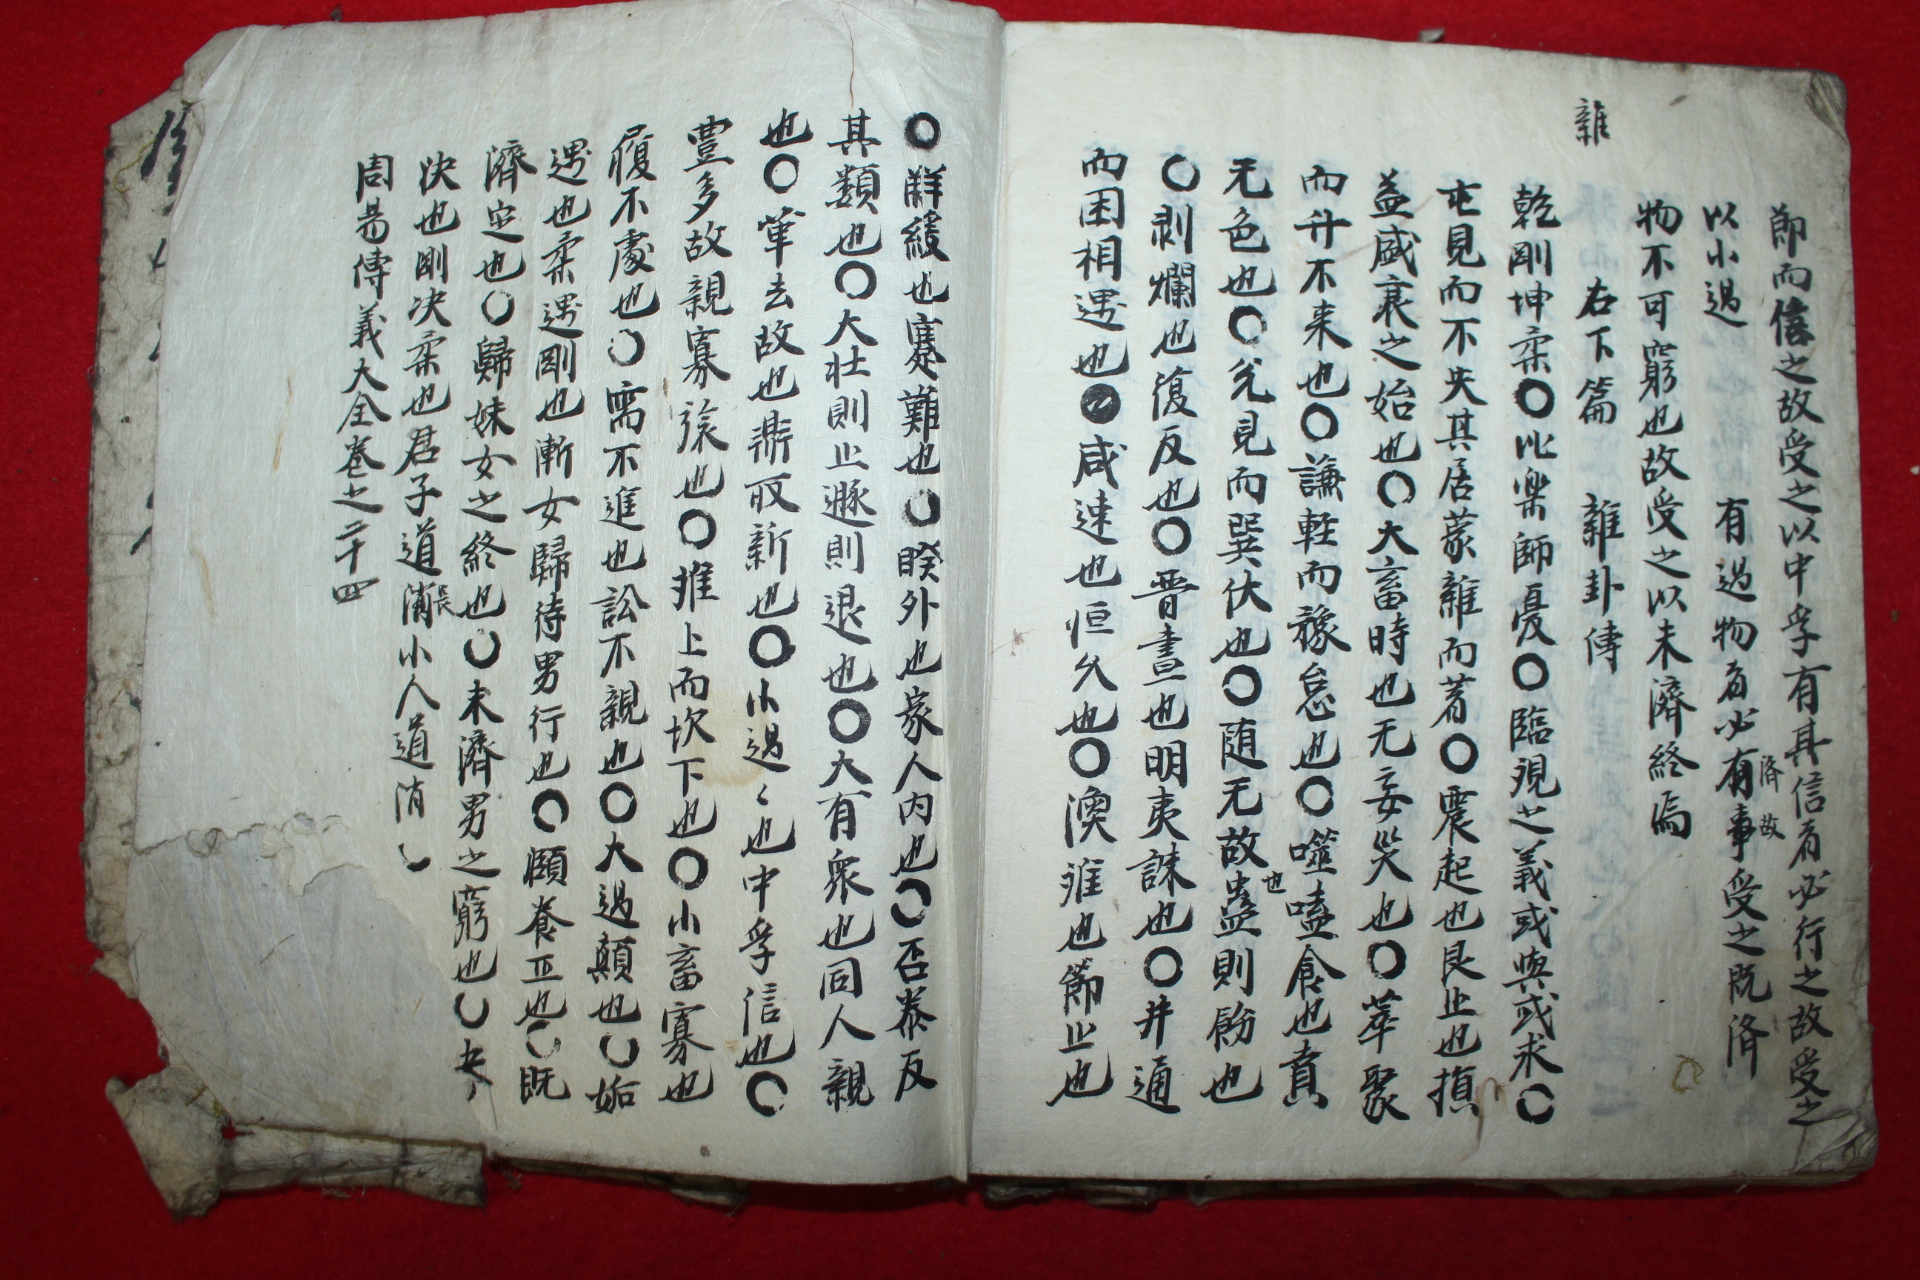 雜
節而信之故受之以中孚有其信者必行之故受之
以小過　有過物者必有事受之既済
済故
物不可窮也故受之以未濟終焉
右下篇　雜卦傳
乾剛坤柔〇比樂師憂〇臨視之義或與或求〇
屯見而不失其居蒙雜而著〇震起也艮止也損
益盛衰之始也〇大畜時也无妄災也〇萃聚
而升不来也〇謙軽而豫怠也〇噬嗑食也賁
无色也〇兌見而巽伏也〇随无故蠱則飭也
也
〇剥爛也復反也〇晋晝也明夷誅也〇井通
而困相遇也咸速也恒久也〇渙離也節止也
〇解緩也蹇難也〇睽外也家人内也〇否泰反
其類也〇大壮則止遯則退也〇大有衆也同人親
也〇革去故也鼎取新也〇小過〻也中孚信也〇
豊多故親寡旅也〇離上而坎下也〇小畜寡也
履不處也〇需不進也訟不親也〇大過顛也〇姤
遇也柔遇剛也漸女歸待男行也〇頤養正也〇既
濟定也〇歸妹女之終也〇未濟男之窮也〇夬
决也剛决柔也君子道消小人道消
長
周易傳義大全卷之二十四